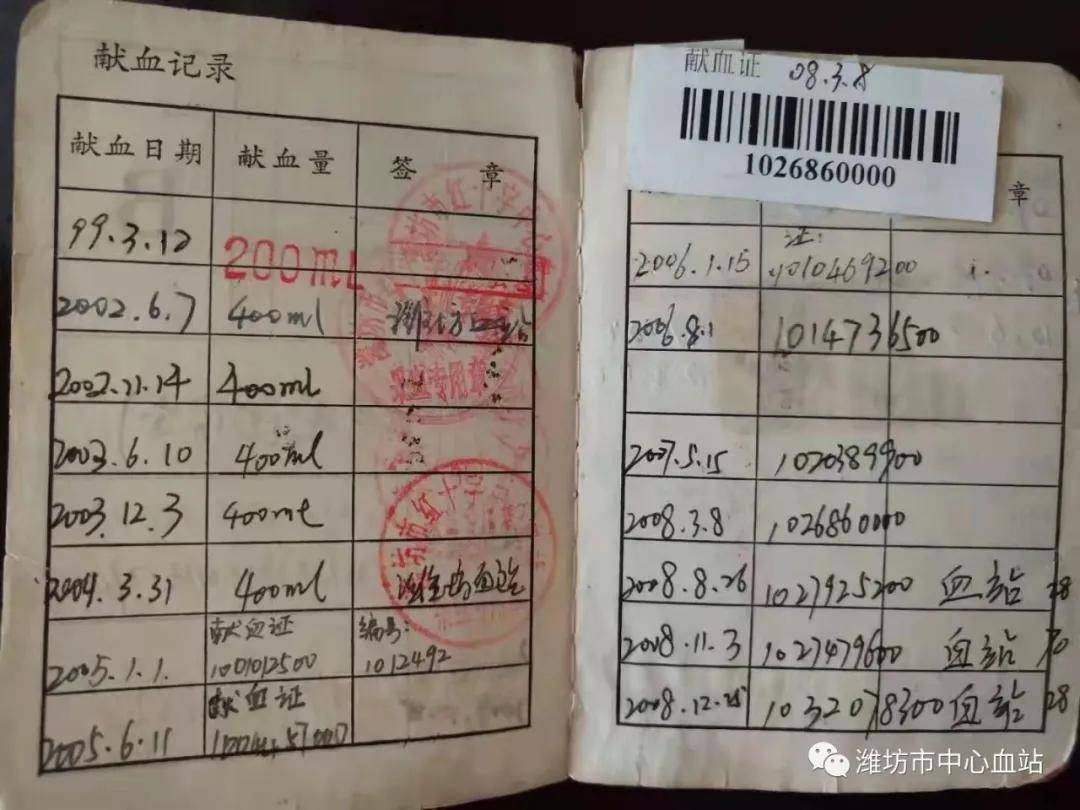 献血记录
献血日期 献血量 签 章
99.3.12 200mL
2002.6.7 400ml 潍坊血站
2002.11.14 400ml
采血专用章
2003.6.10 400ml
2003.12.3 400ml
市红十字
2004.3.31 400ml
献血证 编号:
2005.1.1. 1001012500 1012492
献血证
2005.6.11
献血证 08.3.8
1026860000
章
证:
2006.1.15 1010469200
2006.8.1 1014736500
2007.5.15 1020389900
2008.3.8 1026860000
2008.8.26 1027925200 血站 28
2008.11.3 1027479600 血站 70
2008.12.25 1032078300 血站 28
潍坊市中心血站